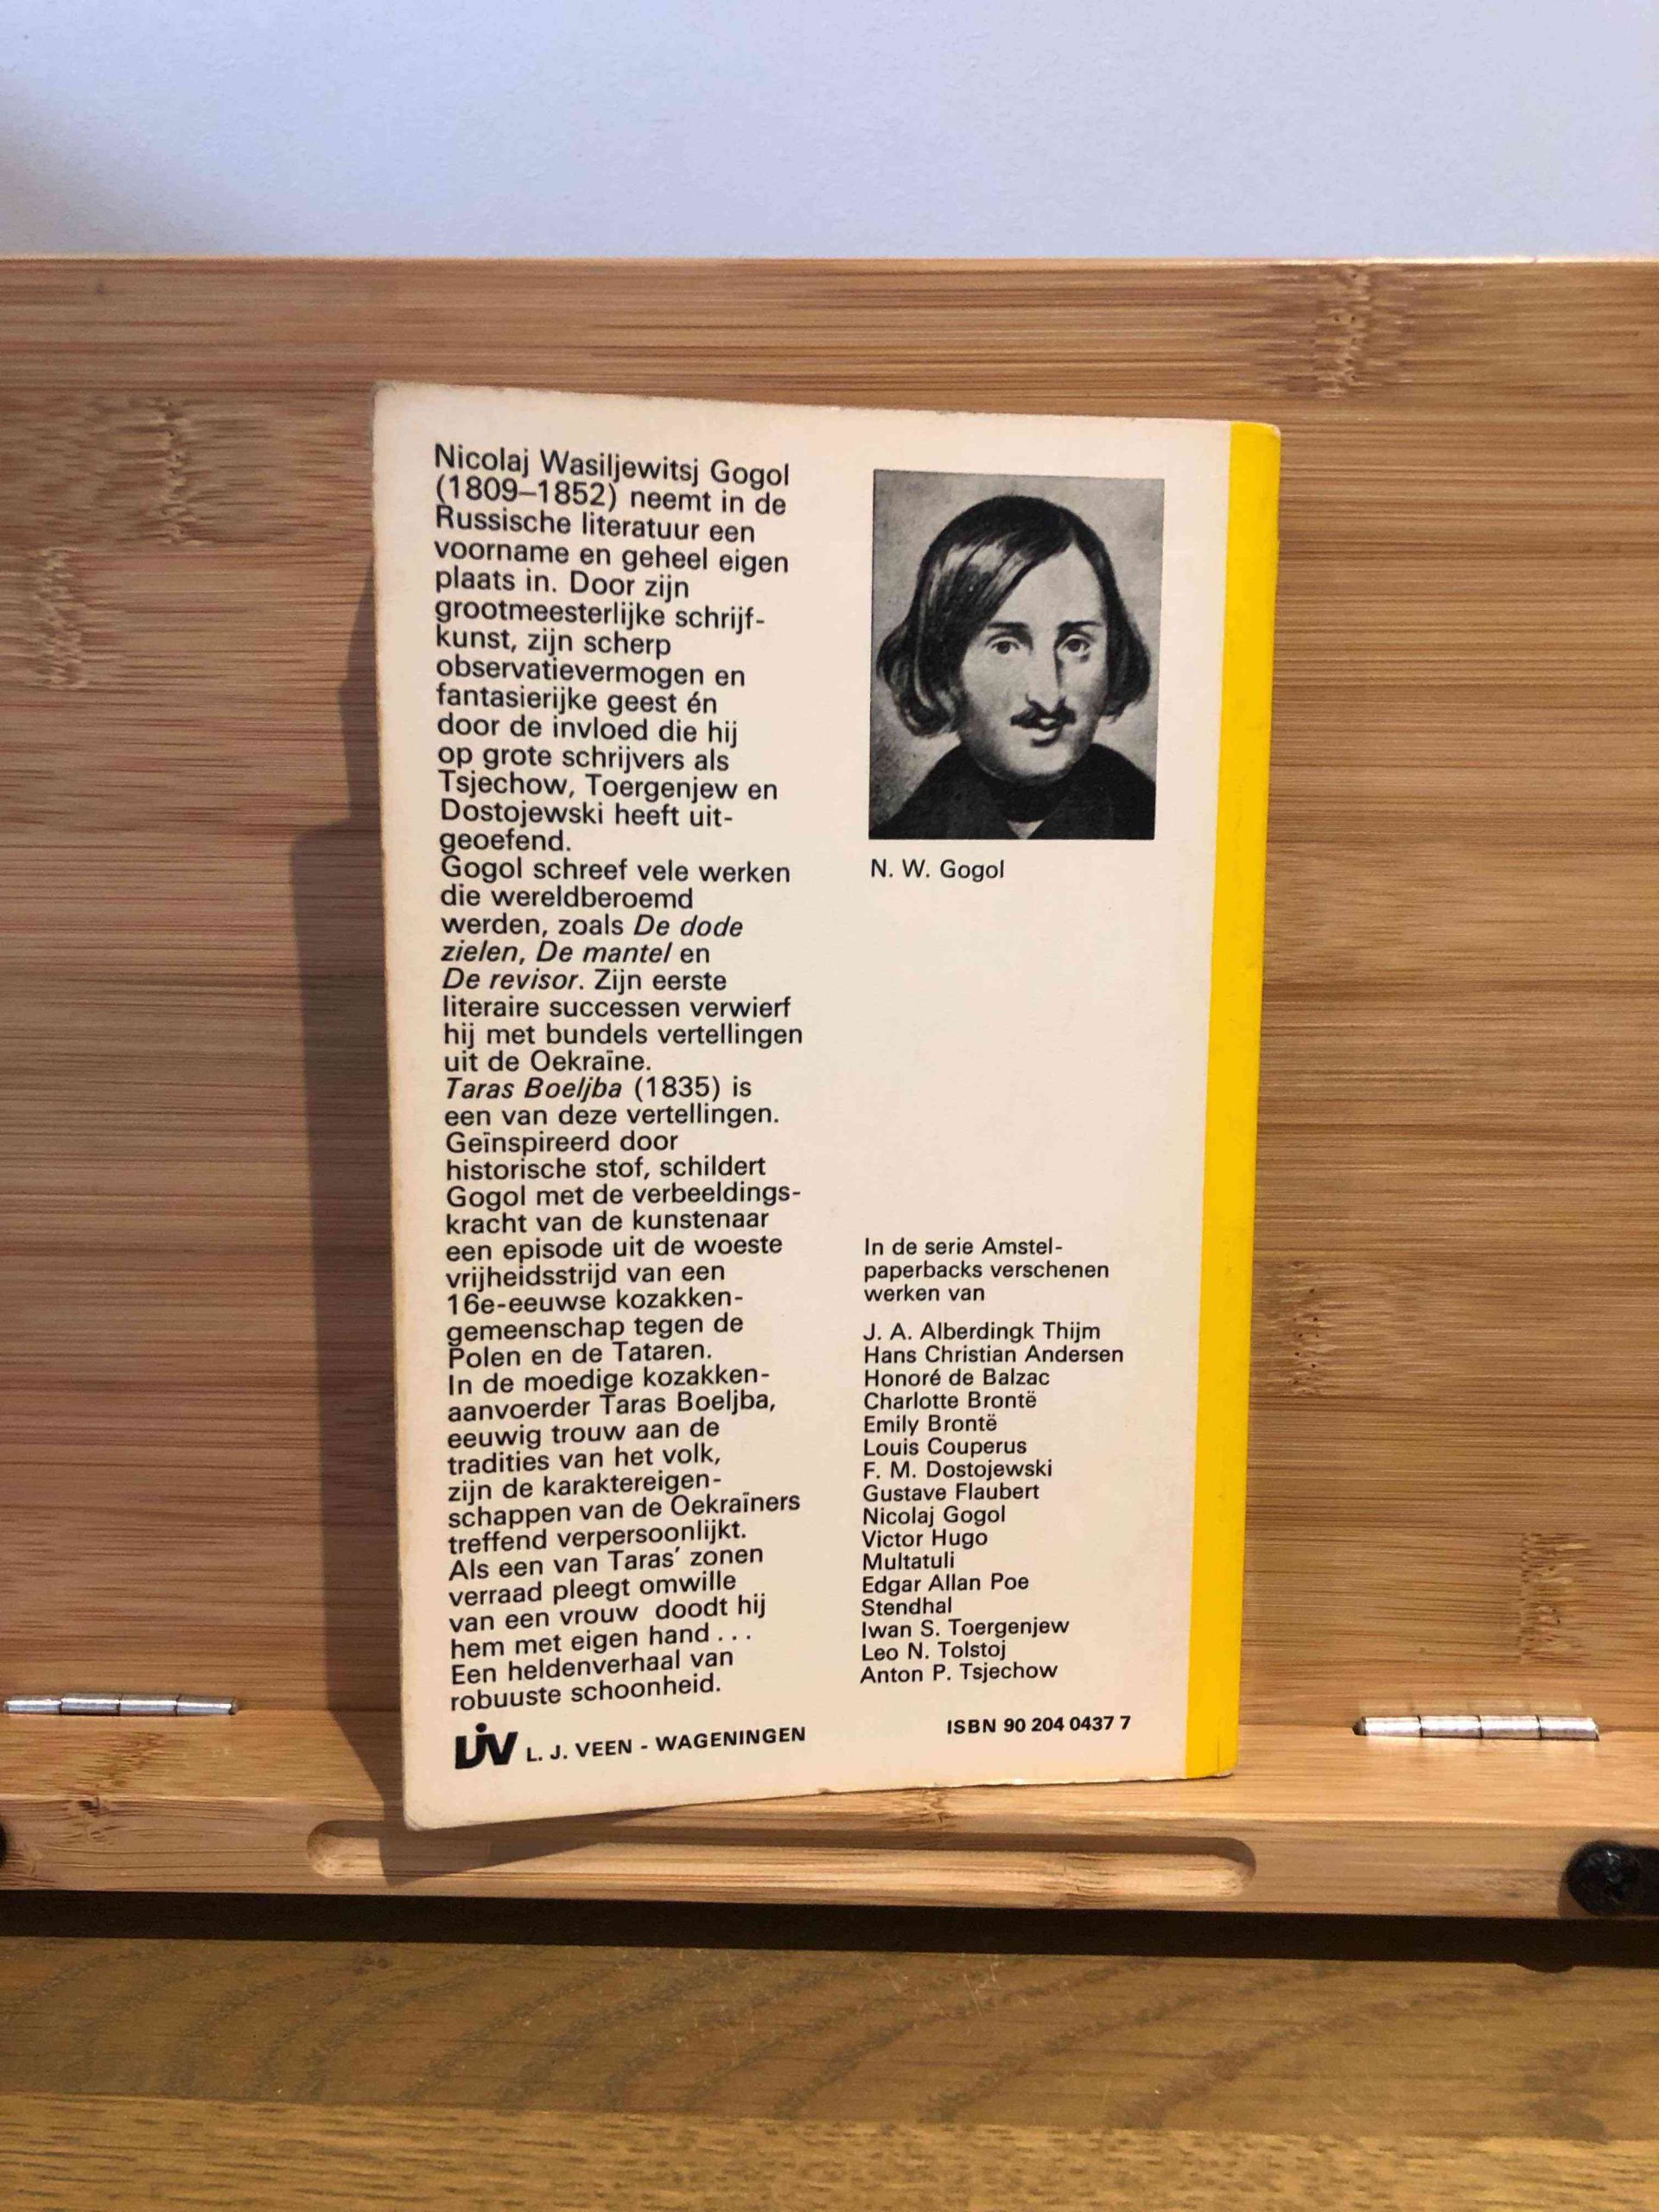 Nicolaj Wasiljewitsj Gogol
(1809–1852) neemt in de
Russische literatuur een
voorname en geheel eigen
plaats in. Door zijn
grootmeesterlijke schrijf-
kunst, zijn scherp
observatievermogen en
fantasierijke geest én
door de invloed die hij
op grote schrijvers als
Tsjechow, Toergenjew en
Dostojewski heeft uit-
geoefend.
Gogol schreef vele werken
die wereldberoemd
werden, zoals De dode
zielen, De mantel en
De revisor. Zijn eerste
literaire successen verwierf
hij met bundels vertellingen
uit de Oekraïne.
Taras Boeljba (1835) is
een van deze vertellingen.
Geïnspireerd door
historische stof, schildert
Gogol met de verbeeldings-
kracht van de kunstenaar
een episode uit de woeste
vrijheidsstrijd van een
16e-eeuwse kozakken-
gemeenschap tegen de
Polen en de Tataren.
In de moedige kozakken-
aanvoerder Taras Boeljba,
eeuwig trouw aan de
tradities van het volk,
zijn de karaktereigen-
schappen van de Oekraïners
treffend verpersoonlijkt.
Als een van Taras' zonen
verraad pleegt omwille
van een vrouw doodt hij
hem met eigen hand ...
Een heldenverhaal van
robuuste schoonheid.
LJV L. J. VEEN - WAGENINGEN
N. W. Gogol
In de serie Amstel-
paperbacks verschenen
werken van
J. A. Alberdingk Thijm
Hans Christian Andersen
Honoré de Balzac
Charlotte Brontë
Emily Brontë
Louis Couperus
F. M. Dostojewski
Gustave Flaubert
Nicolaj Gogol
Victor Hugo
Multatuli
Edgar Allan Poe
Stendhal
Iwan S. Toergenjew
Leo N. Tolstoj
Anton P. Tsjechow
ISBN 90 204 0437 7